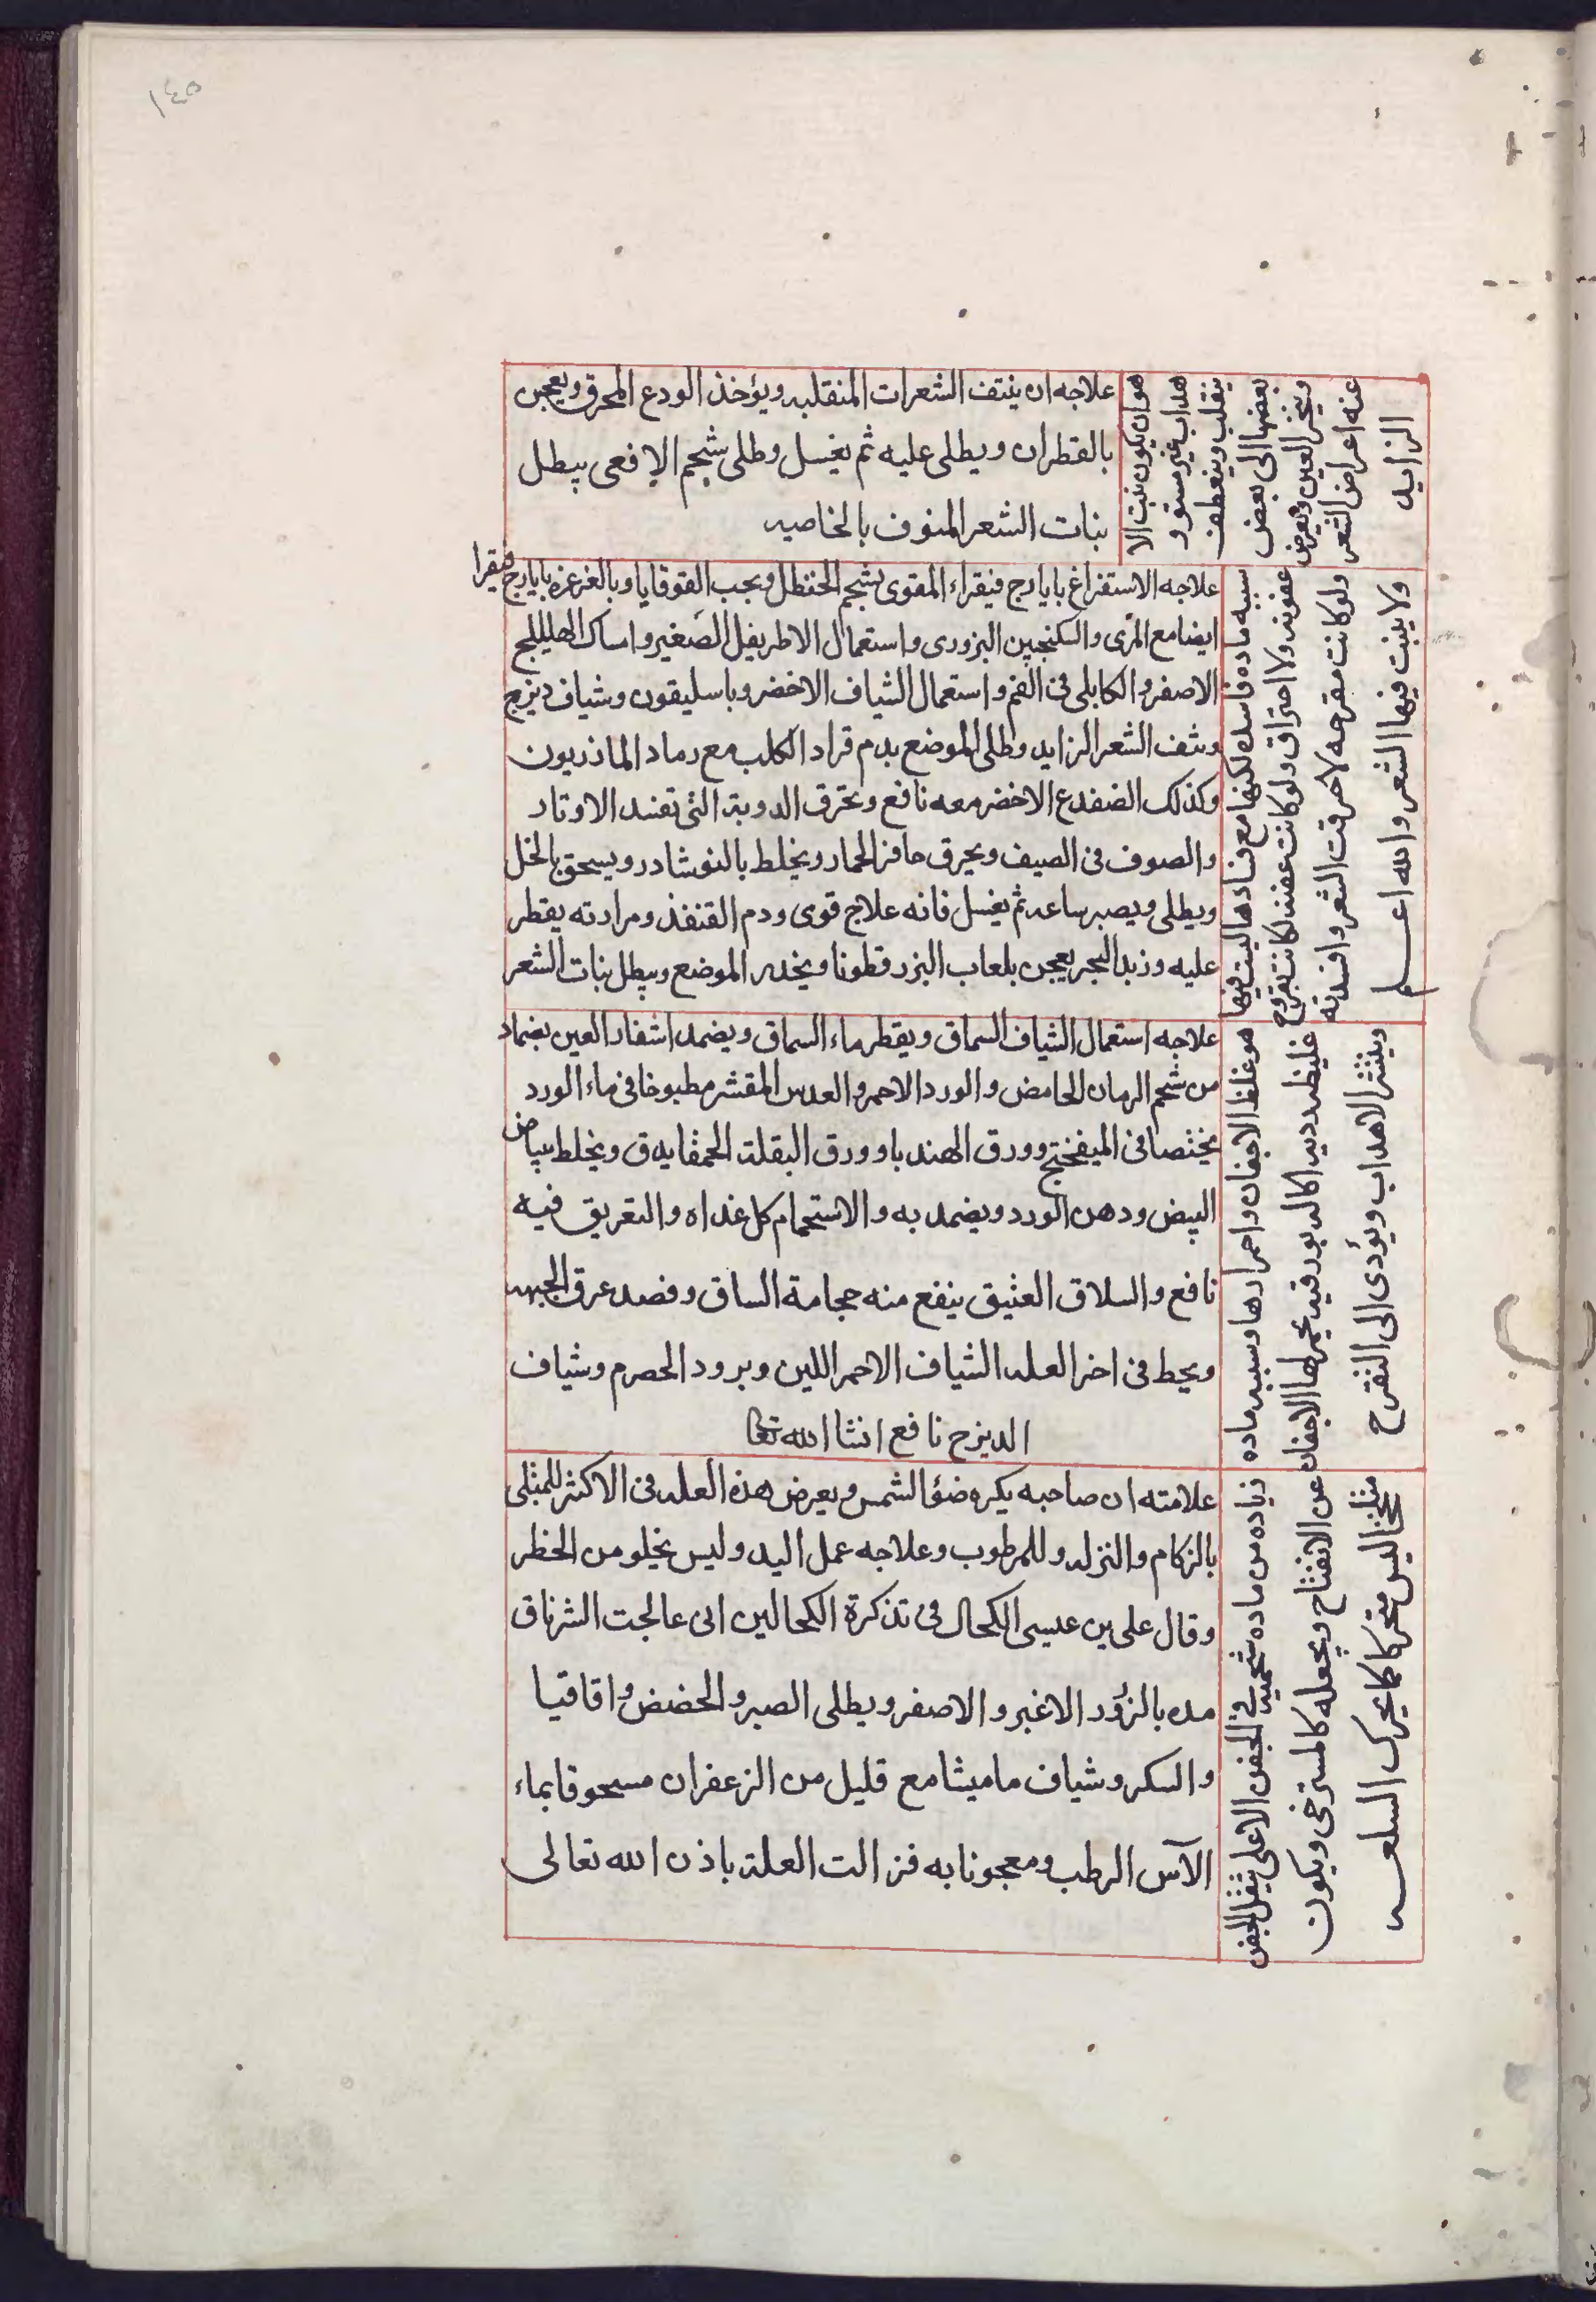 ١٤٥
هو ان يكون نبت الا
هداب غير مستوو
ينقلب وينعطف
بعضها الى بعض
وينخر العين وتعرض
عنه اعراض الشعر
الزايد
علاجه ان ينتف الشعرات المنقلبه ويؤخذ الودع المحرق ويعجن
بالقطران ويطلى عليه ثم يغسل وطلى شحم الافعى يبطل
بنات الشعر المنوف بالخاصيه
سببه ماده فاسده لكنها مع فسادها ليست فيها
عفونه ولا احتراق ولو كانت عفنه لكانت تقرح
ولو كانت مقرحه لاحرقت الشعر وافسدته
ولا ينبت فيها الشعر والله اعلم
علاجه الاستفراغ بايارج فيقراء المقوى بشحم الحنظل وبحب القوقايا وبالغرغره بايارج فيقرا
ايضا مع المرى والسكنجبين البزورى واستعمال الاطريفل الصغير وامساك الهليللج
الاصفر والكابلى فى الفم واستعمال الشياف الاخضر وباسليقون وشياف ديزج
ونتف الشعر الزايد وطلى الموضع بدم قراد الكلب مع رماد الماذريون
وكذلك الضفدع الاخضر معه نافع وتحرق الدوبة التى تفسد الاوتار
والصوف فى الصيف ويحرق حافر الحمار ويخلط بالنوشادر ويسحق بالخل
ويطلى ويصبر ساعه ثم يغسل فانه علاج قوى ودم القنفذ ومرارته يقطر
عليه وزبد البحر يعجن بلعاب البزر قطونا ويخدر الموضع ويبطل بنات الشعر
هو غلظ الاجفان واحمرارها وسببه ماده
غليظه رديه اكاله بورقيه يحمر لها الاجفان
وينتثر الاهداب ويؤدى الى التقرح
علاجه استعمال الشياف السماق ويقطر ماء السماق ويضمد اشفار العين بضماد
من شحم الرمان الحامض والورد الاحمر والعدس المقشر مطبوخا فى ماء الورد
فى الميفختج وورق الهندبا وورق البقلة الحمقا يدق ويخلط ببياض
البيض ودهن الورد ويضمد به والاستحمام كل غداه والتعريق فيه
نافع والسلاق العتيق ينفع منه حجامة الساق وفصد عرق الجبهه
ويحط فى اخر العله الشياف الاحمر اللين وبرود الحصرم وشياف
الديزج نافع انشا الله تعالى
زياده من ماده شحميه فى الجفن الاعلى يثقل الجفن
عن الانفتاح ويجعله كالمسترخى ويكون
ملتحجا ليس متحركا كما يحرك السلعه
علامته ان صاحبه يكره ضؤ الشمس ويعرض هذه العله فى الاكثر للمبتلى
بالزكام والنزله وللمرطوب وعلاجه عمل اليد وليس يخلو من الخطر
وقال على بن عيسى الكحال فى تذكرة الكحالين انى عالجت الشرناق
مده بالزؤر الاغبر والاصفر ويطلى الصبر والحضض واقاقيا
والسكر وشياف ماميثا مع قليل من الزعفران مسحوقا بماء
الآس الرطب ومعجونا به فزالت العلة باذن الله تعالى